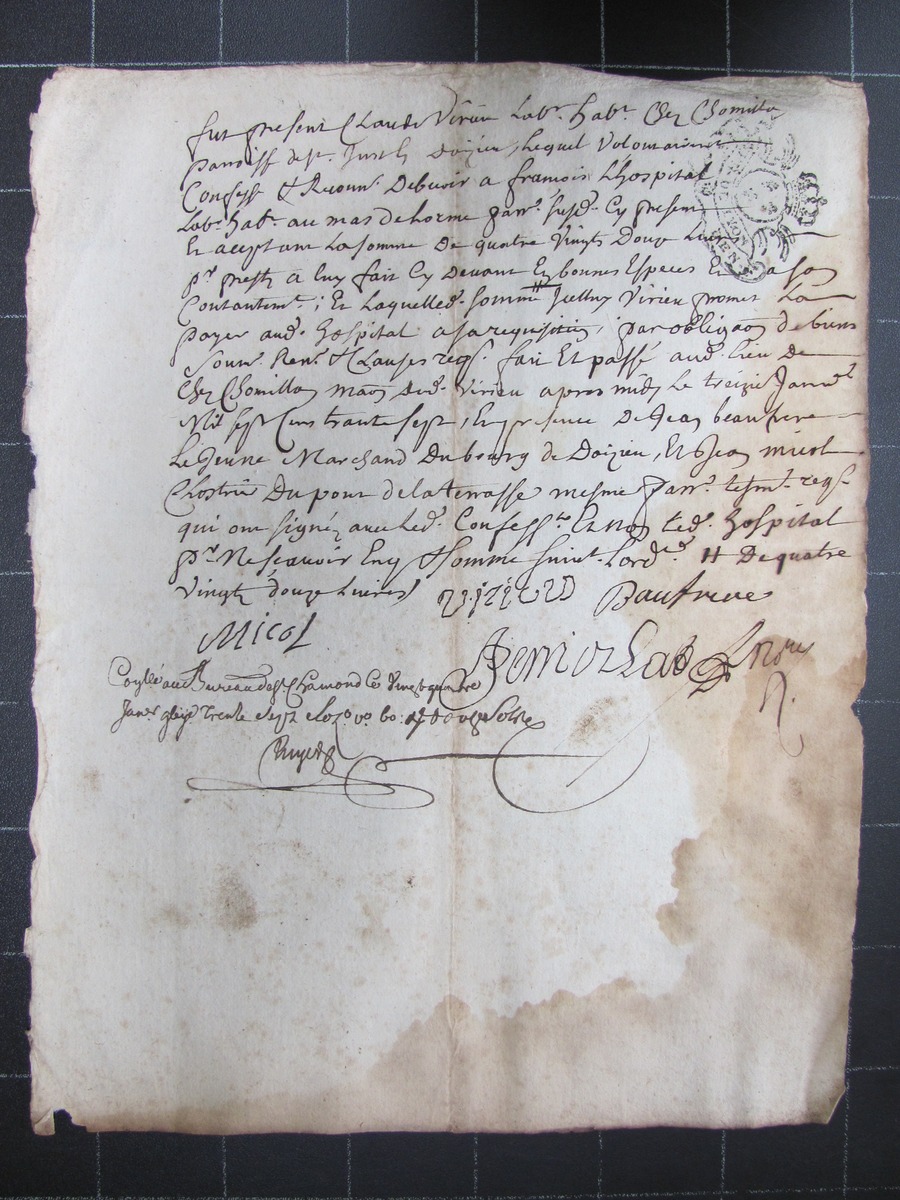 fut present Claude Virieu Labr. habt. Chez Chomilla
parroiss de st. Just les doizieu, lequel Volontairemt
Confesse & Reconn. Debvoir a francois Lhospital
Labr. habt. au mas de horme parr. susd. Cy present
Et aceptant La somme De quatre Vingts Douze Liv
pr. prest a luy fait Cy Devant En bonnes Especes Et a son
Contantemt, Et Laquelle d. somme Icelluy Virieu promet La
payer aud. hospital a sa requisition, par obligaon de biens
Soum. Ren. & Clauses reqs. fait Et passé aud. lieu De
Chez Chomilla maon dud. Virieu apres midy Le treize Janvr
Mil sept Cens trante sept, En presence De Jean beaufrere
Le Jeune Marchand Du bourg de Doizieu, Et Jean micol
Du pont de la terrasse mesme parr. tesm. reqs.
qui ont signé avec led. Confesst Et non led. hospital
pr. Ne scavoir Enq & Somme suivt. Lordce H De quatre
Vingts douze Livres
Baufrere
Micol
au Bureau de st Chamond le vingt quatre
Janvr trente sept